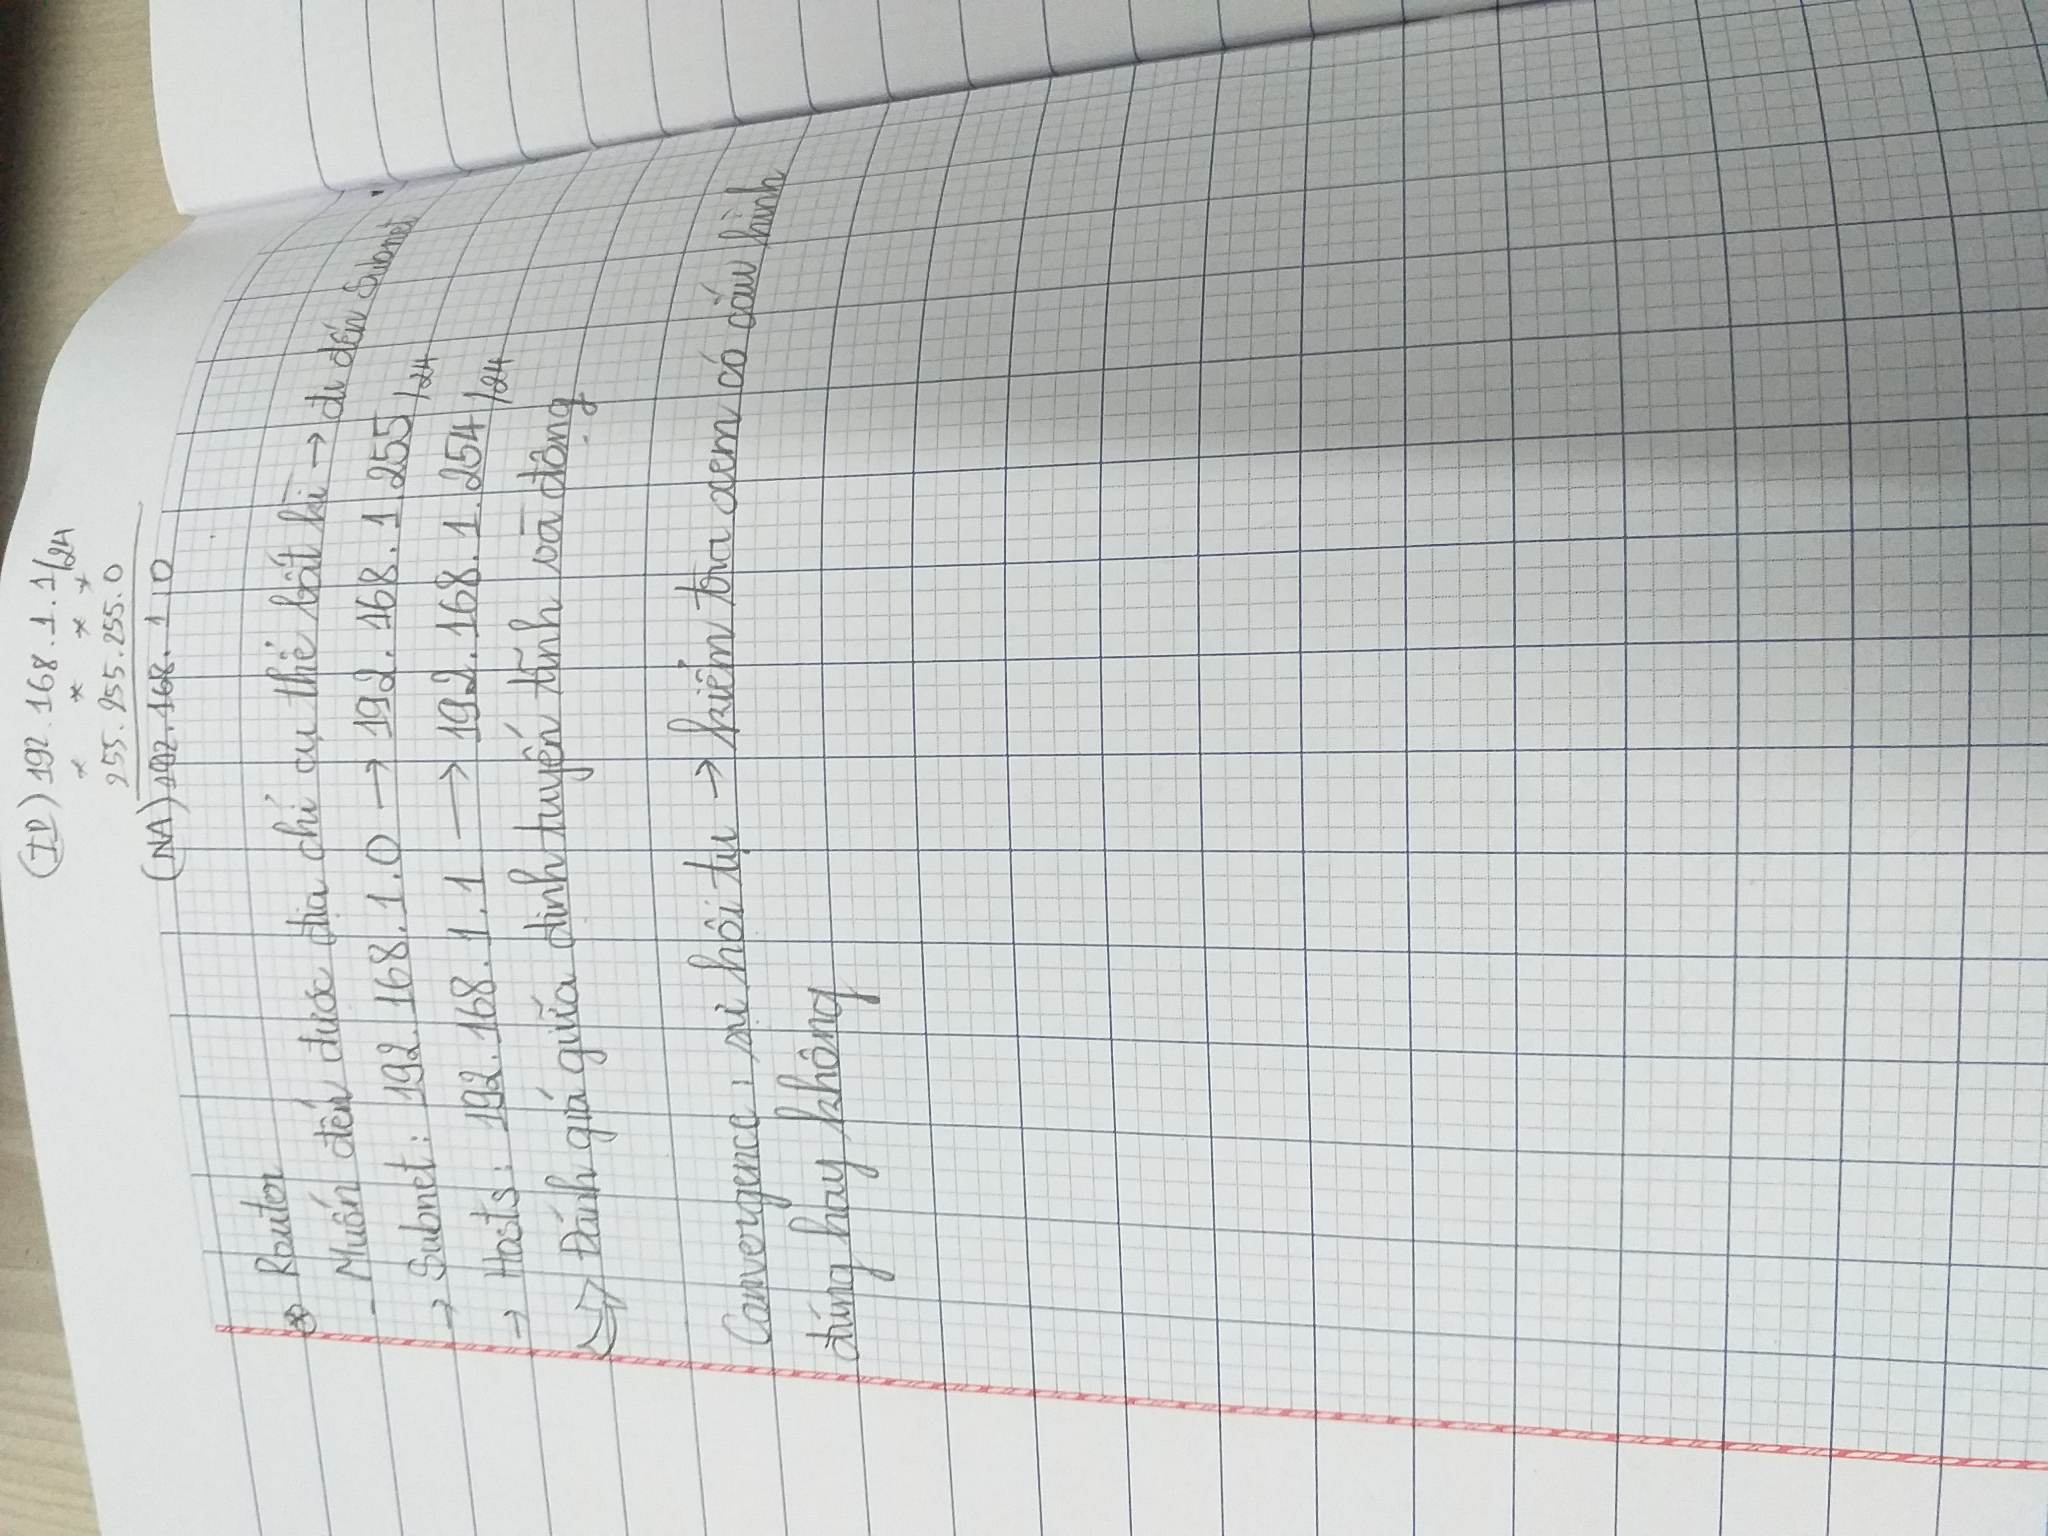 (IP) 192.168.1.1/24
* * * *
255.255.255.0
(NA) 192.168.1.0
⊛ Router
- Muốn đến được địa chỉ cụ thể bất kì → đi đến Subnet
→ Subnet: 192.168.1.0 → 192.168.1.255/24
→ Hosts: 192.168.1.1 → 192.168.1.254/24
↳ Đánh giá giữa định tuyến tĩnh và động
Convergence: sự hội tụ → kiểm tra xem có cấu hình
đúng hay không